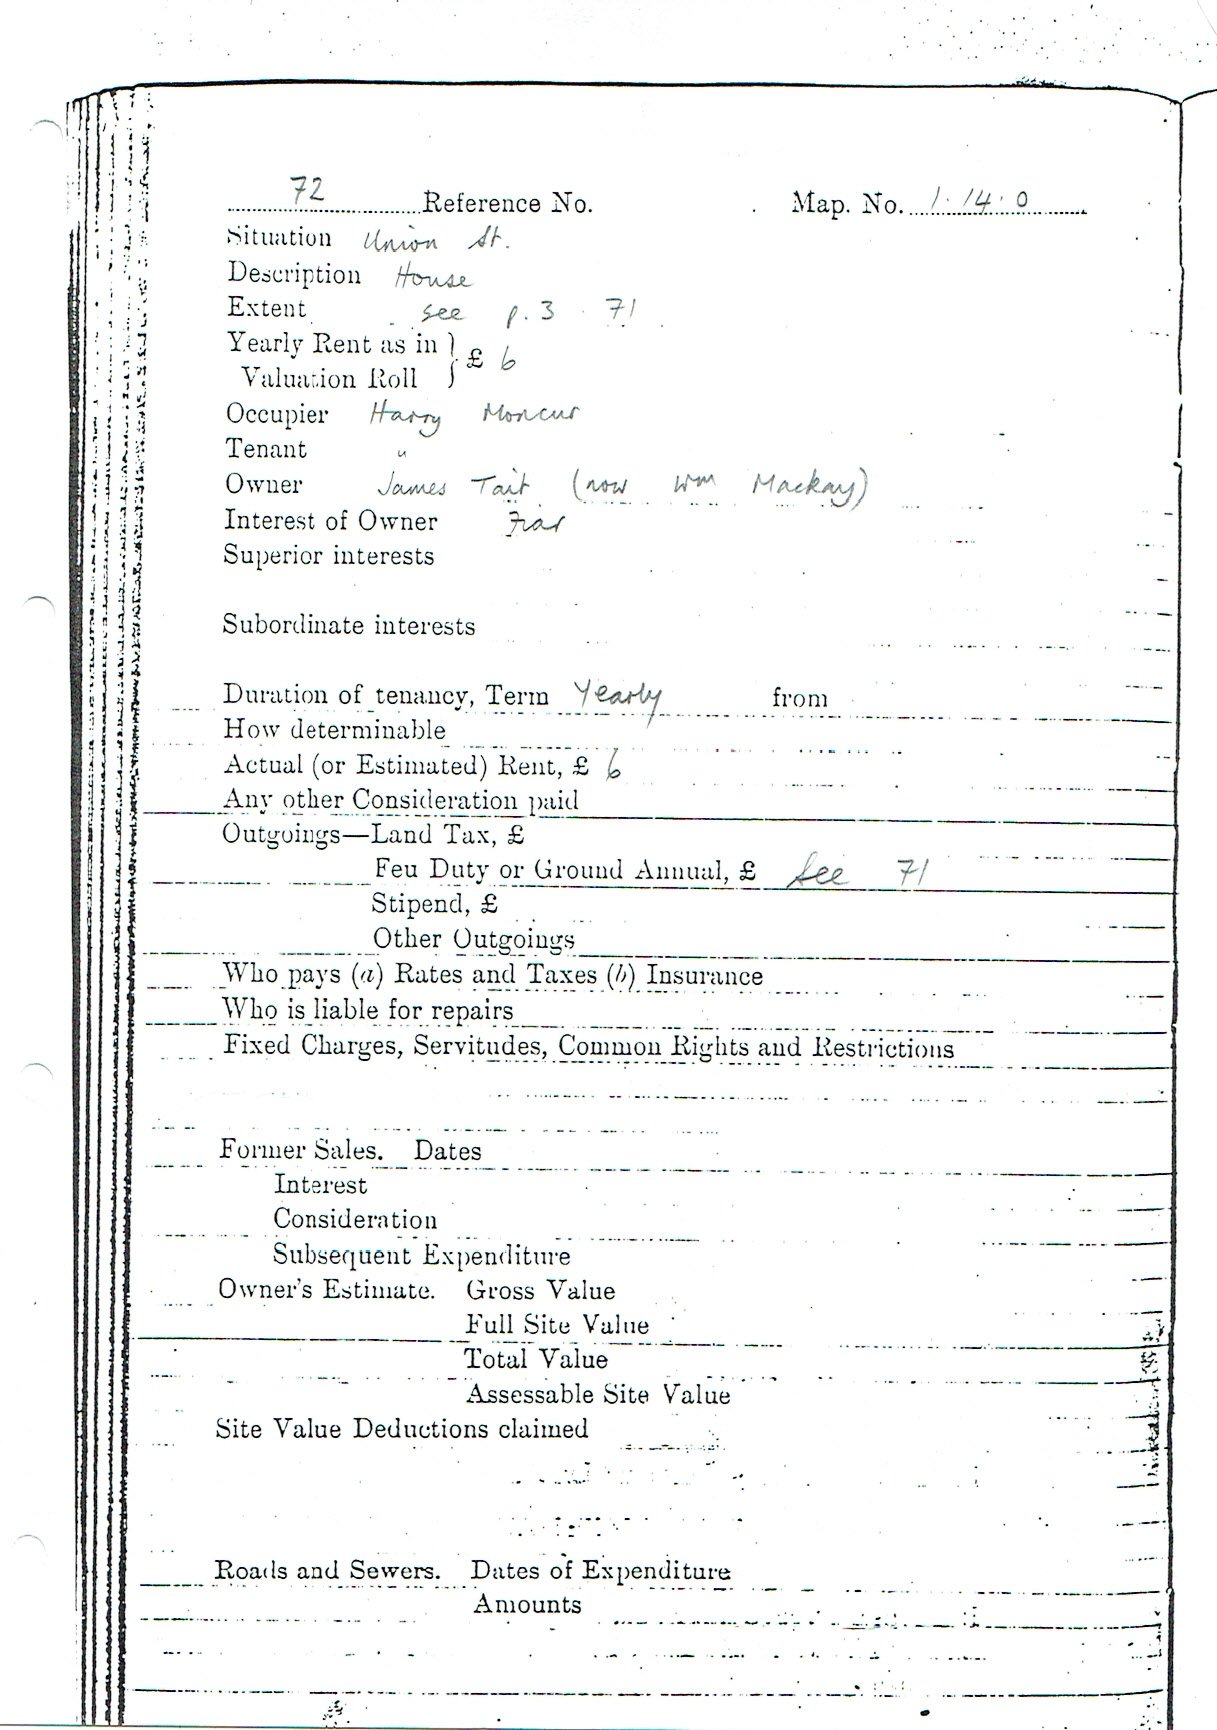 72 Reference No. Map. No. 1.14.0
Situation Union St.
Description House
Extent see p. 3 71
Yearly Rent as in
Valuation Roll } £ 6
Occupier Harry Moncur
Tenant "
Owner James Tait (now Wm Mackay)
Interest of Owner Fiar
Superior interests
Subordinate interests
Duration of tenancy, Term Yearly from
How determinable
Actual (or Estimated) Rent, £ 6
Any other Consideration paid
Outgoings—Land Tax, £
Feu Duty or Ground Annual, £ See 71
Stipend, £
Other Outgoings
Who pays (a) Rates and Taxes (b) Insurance
Who is liable for repairs
Fixed Charges, Servitudes, Common Rights and Restrictions
Former Sales. Dates
Interest
Consideration
Subsequent Expenditure
Owner's Estimate. Gross Value
Full Site Value
Total Value
Assessable Site Value
Site Value Deductions claimed
Roads and Sewers. Dates of Expenditure
Amounts